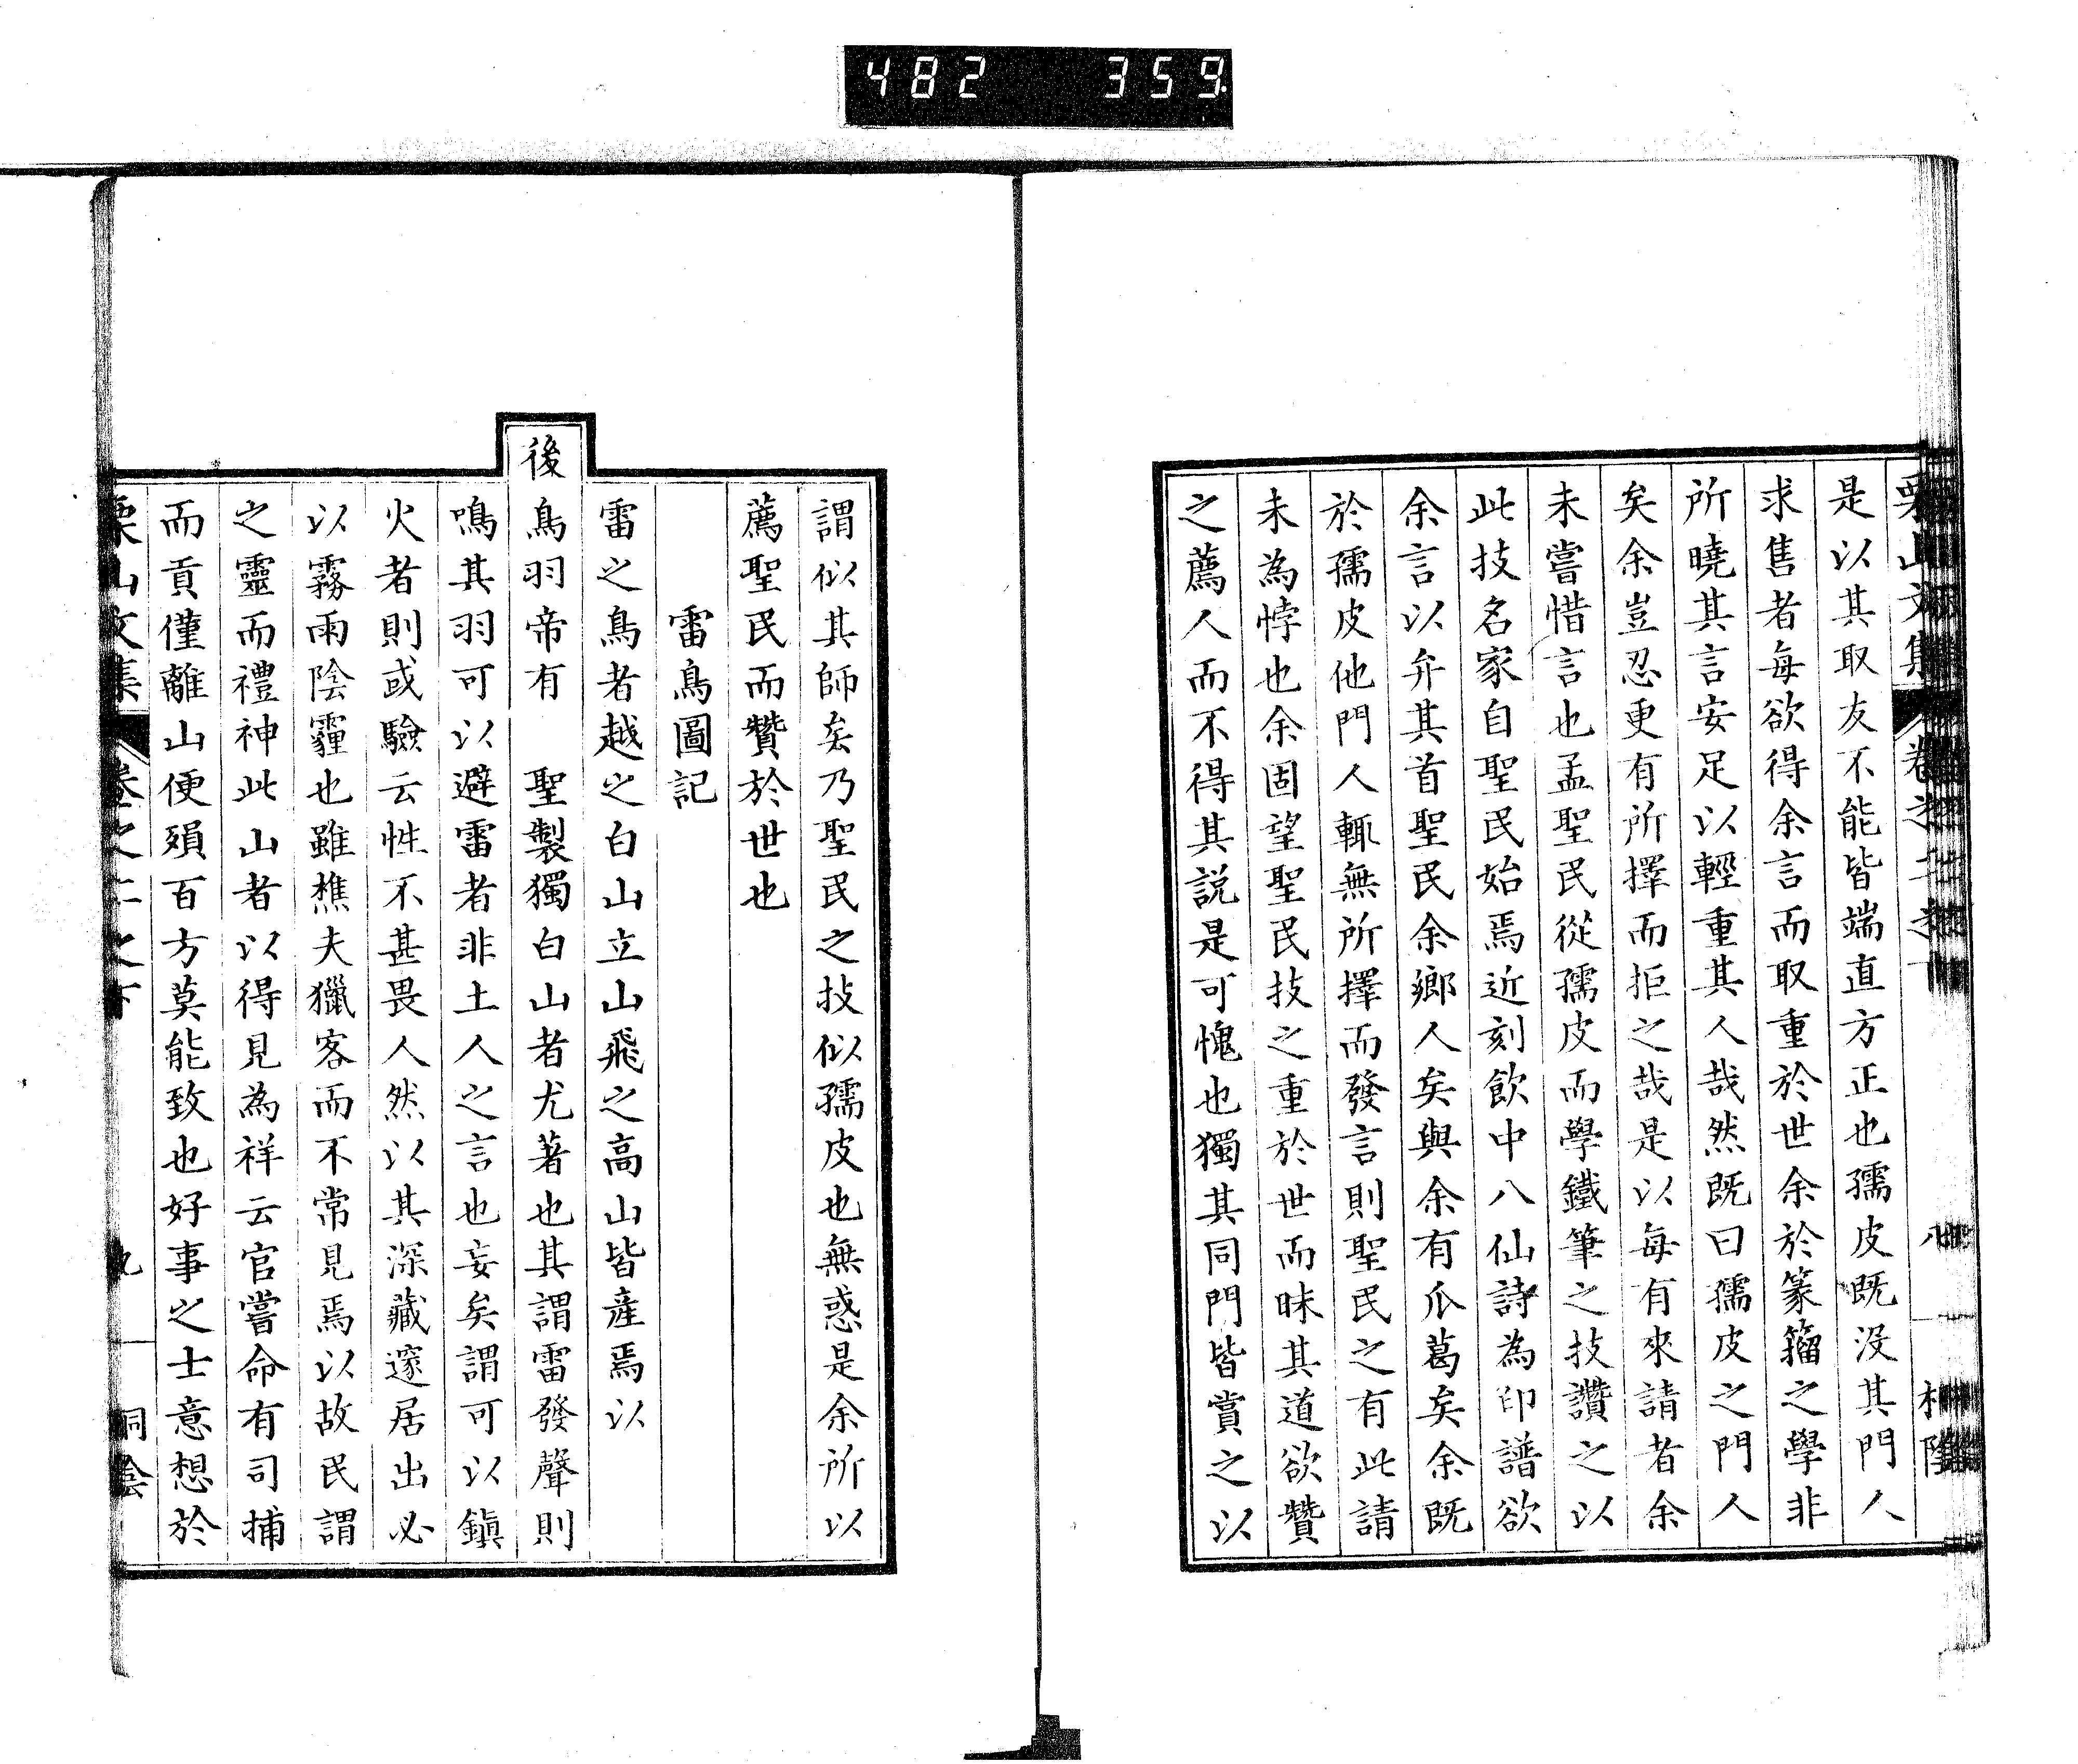 482 359
栗山文集 卷之二之下 八
是以其取友不能皆端直方正也孺皮既没其門人
求售者每欲得余言而取重於世余於篆籀之學非
所曉其言安足以輕重其人哉然既曰孺皮之門人
矣余豈忍更有所擇而拒之哉是以每有來請者余
未嘗惜言也孟聖民從孺皮而學鐵筆之技讚之以
此技名家自聖民始焉近刻飲中八仙詩為印譜欲
余言以弁其首聖民余鄉人矣與余有瓜葛矣余既
於孺皮他門人輒無所擇而發言則聖民之有此請
未為悖也余固望聖民技之重於世而昧其道欲贊
之薦人而不得其説是可愧也獨其同門皆賞之以
謂似其師矣乃聖民之技似孺皮也無惑是余所以
薦聖民而贊於世也
雷鳥圖記
雷之鳥者越之白山立山飛之高山皆産焉以
後鳥羽帝有 聖製獨白山者尤著也其謂雷發聲則
鳴其羽可以避雷者非土人之言也妄矣謂可以鎭
火者則或驗云性不甚畏人然以其深藏邃居出必
以霧雨陰霾也雖樵夫獵客而不常見焉以故民謂
之靈而禮神此山者以得見為祥云官嘗命有司捕
而貢僅離山便殞百方莫能致也好事之士意想於
栗山文集 卷之二之下 九 桐陰